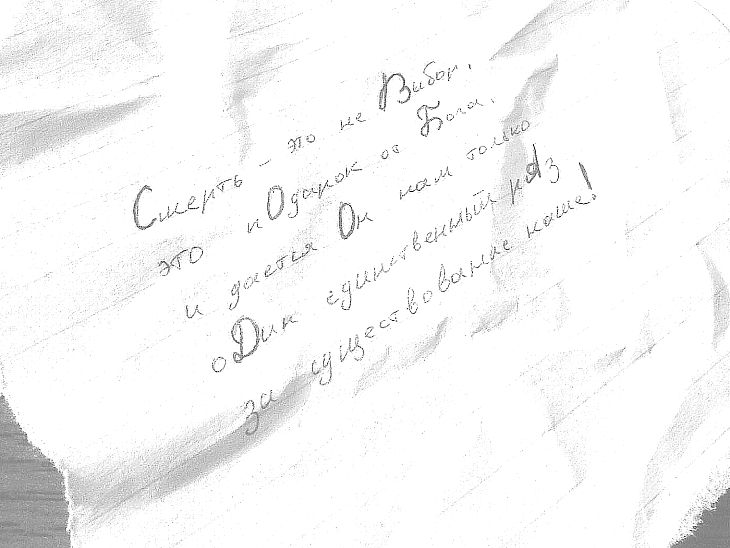 Смерть - это не Вибор.
это пОдарок от Бога.
и дается Он нам только
оДин единственный рАз
за существование наше!